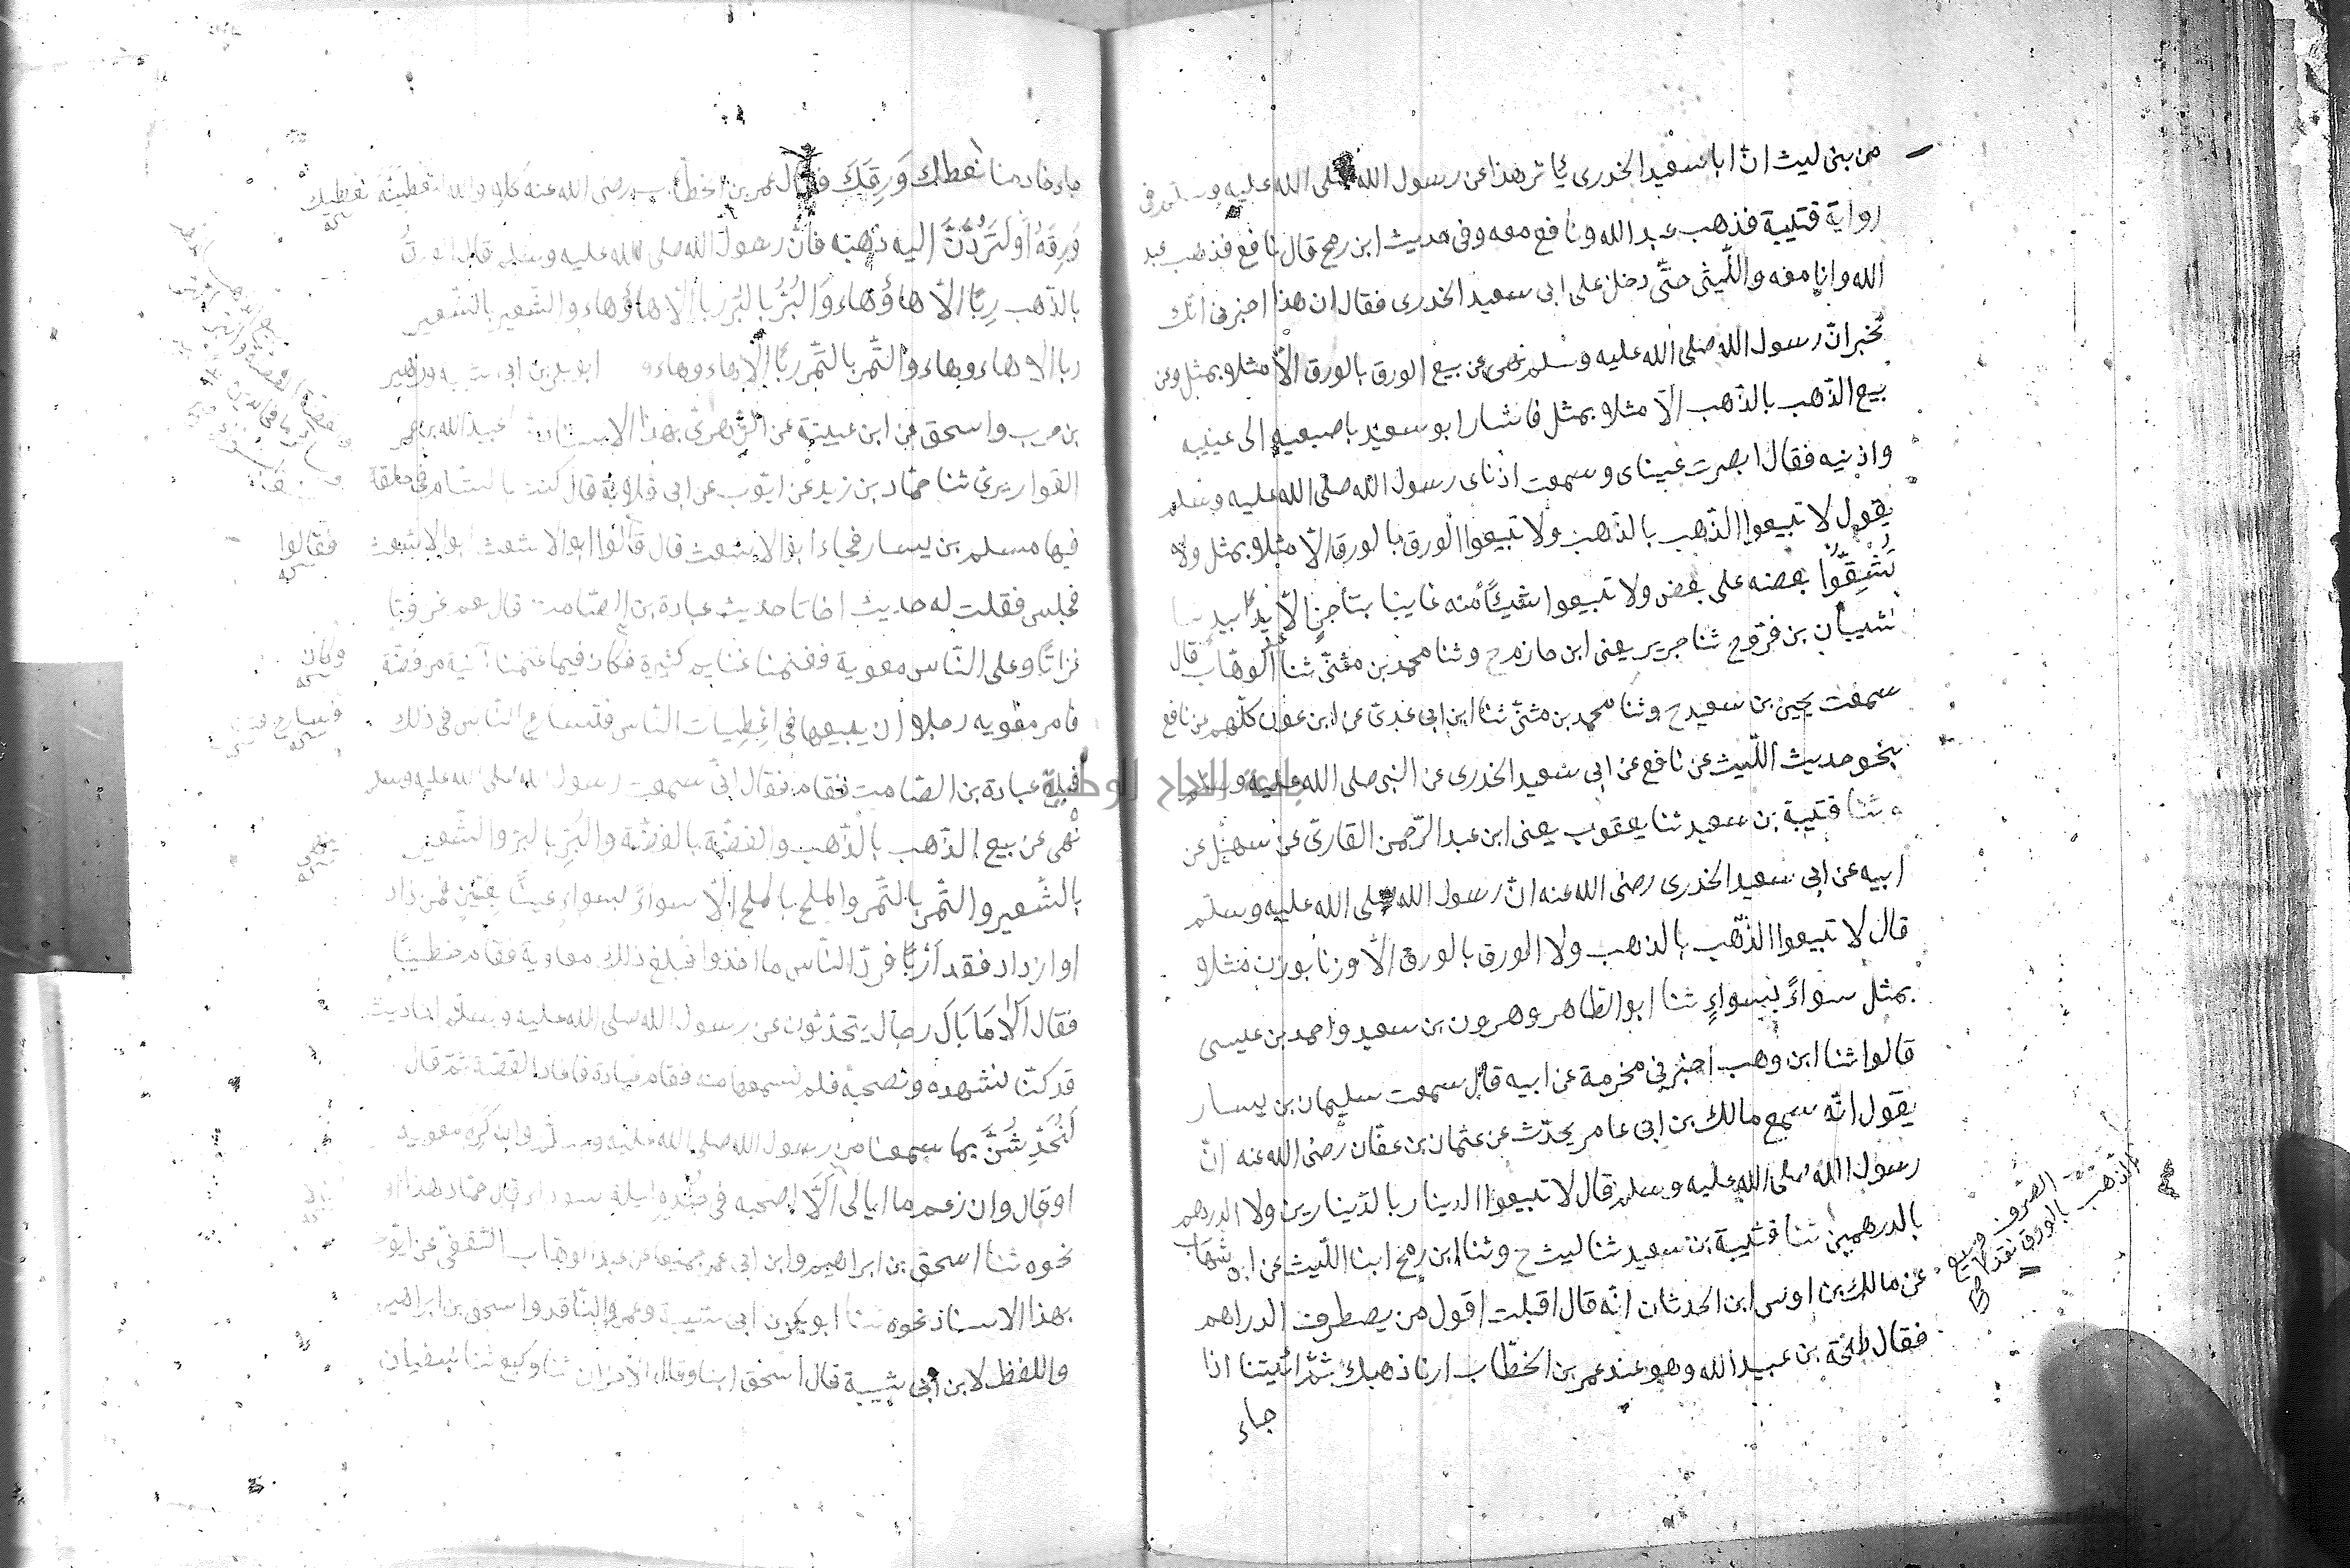 من بنى ليث انّ ابا سعيد الخدرى يأثر هذا عن رسول الله صلى الله عليه وسلم فى
رواية قتيبة فذهب عبد الله ونافع معه وفى حديث ابن رمح قال نافع فذهب عبد
الله وانا معه والليثى حتّى دخل على ابى سعيد الخدرى فقال ان هذا اخبرنى انّك
تخبر انّ رسول الله صلى الله عليه وسلم نهى عن بيع الورق بالورق الّا مثلا بمثل وعن
بيع الذّهب بالذّهب الّا مثلا بمثل فاشار ابو سعيد باصبعيه الى عينيه
واذنيه فقال ابصرت عيناى وسمعت اذناى رسول الله صلى الله عليه وسلم
يقول لا تبيعوا الذّهب بالذّهب ولا تبيعوا الورق بالورق الّا مثلا بمثل ولا
تُشِفُّوا بعضه على بعض ولا تبيعوا شيئًا منه غايبا بناجز الّا يدًا بيد
شيبان بن فرّوخ ثنا جرير يعنى ابن حازم ح وثنا محمد بن مثنّى ثنا الوهّاب قال
سمعت يحيى بن سعيد ح وثنا محمد بن مثنّى ثنا ابن ابى عدىّ عن ابن عون كلّهم عن نافع
بنحو حديث اللّيث عن نافع عن ابى سعيد الخدرى عن النبى صلى الله عليه وسلم
وثنا قتيبة بن سعيد ثنا يعقوب يعنى ابن عبد الرّحمن القارىّ عن سهيل عن
ابيه عن ابى سعيد الخدرى رضى الله عنه انّ رسول الله صلى الله عليه وسلّم
قال لا تبيعوا الذّهب بالذهب ولا الورق بالورق الّا وزنا بوزن مثلا
بمثل سواءً بسواءٍ ثنا ابو الطّاهر وهرون بن سعيد واحمد بن عيسى
قالوا ثنا ابن وهب اخبرنى مخرمة عن ابيه قال سمعت سليمان بن يسار
يقول انّه سمع مالك بن ابى عامر يحدّث عن عثمان بن عفّان رضى الله عنه انّ
رسول الله صلى الله عليه وسلم قال لا تبيعوا الدينار بالدّينارين ولا الدرهم
بالدرهمين ثنا قتيبة بن سعيد ثنا ليث ح وثنا ابن رمح ابنا اللّيث عن ابن شهاب
عن مالك بن اوس ابن الحدثان انّه قال اقبلت اقول من يصطرف الدراهم
فقال طلحة بن عبيد الله وهو عند عمر بن الخطّاب ارنا ذهبك ثمّ ائيتنا اذا
جاء
الصّرف وبيع
الذّهب بالورق نقدا
جاء خادمنا نعطك وَرِقَكَ وقال عمر بن الخطّاب رضى الله عنه كلا والله لتعطينّه
نعطيك
وَرِقَهُ أَوْ لَتَرُدَّنَّ اليه ذهبه فانّ رسول الله صلى الله عليه وسلم قال الورقُ
بالذّهب رِبًا الّا هاؤهاء وَالبُرُّ بالبُرّ ربا الّا هاؤهاء والشّعير بالشّعير
ربا الا هاء وهاء والتّمر بالتّمر ربًا الّا هاء وهاء ابو بكر بن ابى شيبه وزهير
بن حرب واسحق عن ابن عيينة عن الزّهرىّ بهذا الاسناد عبيد الله بن عمر
القواريرىّ ثنا حمّاد بن زيد عن ايّوب عن ابى قلابة قال كنت بالشام فى حلقة
فيها مسلم بن يسار فجاء ابو الاشعث قال قالوا ابو الاشعث ابو الاشعث
فقالوا
فجلس فقلت له حديث اخانا حديث عبادة بن الصّامت قال نعم غزونا
غزاتًا وعلى النّاس معوية فغنمنا غنايم كثيرة فكان فيما غنمنا آنية من فضّة
وكان
فامر معويه رجلا أن يبيعها فى اعطيات النّاس فتسارع النّاس فى ذلك
فبلغ عبادة بن الصّامت فقام فقال انّى سمعت رسول الله صلى الله عليه وسلم
نهى عن بيع الذّهب بالذّهب والفضّة بالفضّة والبُرِّ بالبرّ والشّعير
بالشّعير والتّمر بالتّمر والملح بالملح الّا سواءً بسواءٍ عينًا بعينٍ فمن زاد
او ازداد فقد اَرْبٰا فردّ النّاس ما اخذوا فبلغ ذلك معاوية فقام خطيبًا
فقال اَلَا مَا بَالُ رجال يتحدّثون عن رسول الله صلى الله عليه وسلّم احاديث
قد كنّا نشهده ونصحبه فلم نسمعها منه فقام عبادة فاعاد القصّة ثمّ قال
لَنُحَدِّثَنَّ بما سمعنا من رسول الله صلى الله عليه وسلم وان كره معوية
او قال وان زعم ما ابالى اَلّا اصحبه فى جُنْدِهِ ليلة سوداء قال حمّاد هذا او
نحوه ثنا اسحق بن ابراهيم وابن ابى عمر جميعا عن عبد الوهّاب الثّقفىّ عن ايّوب
بهذا الاسناد نحوه ثنا ابو بكر بن ابى شيبة وعمرو النّاقد واسحق بن ابراهيم
واللفظ لابن ابى شيبة قال اسحق ابنا وقال الاخران ثنا وكيع ثنا سفيان